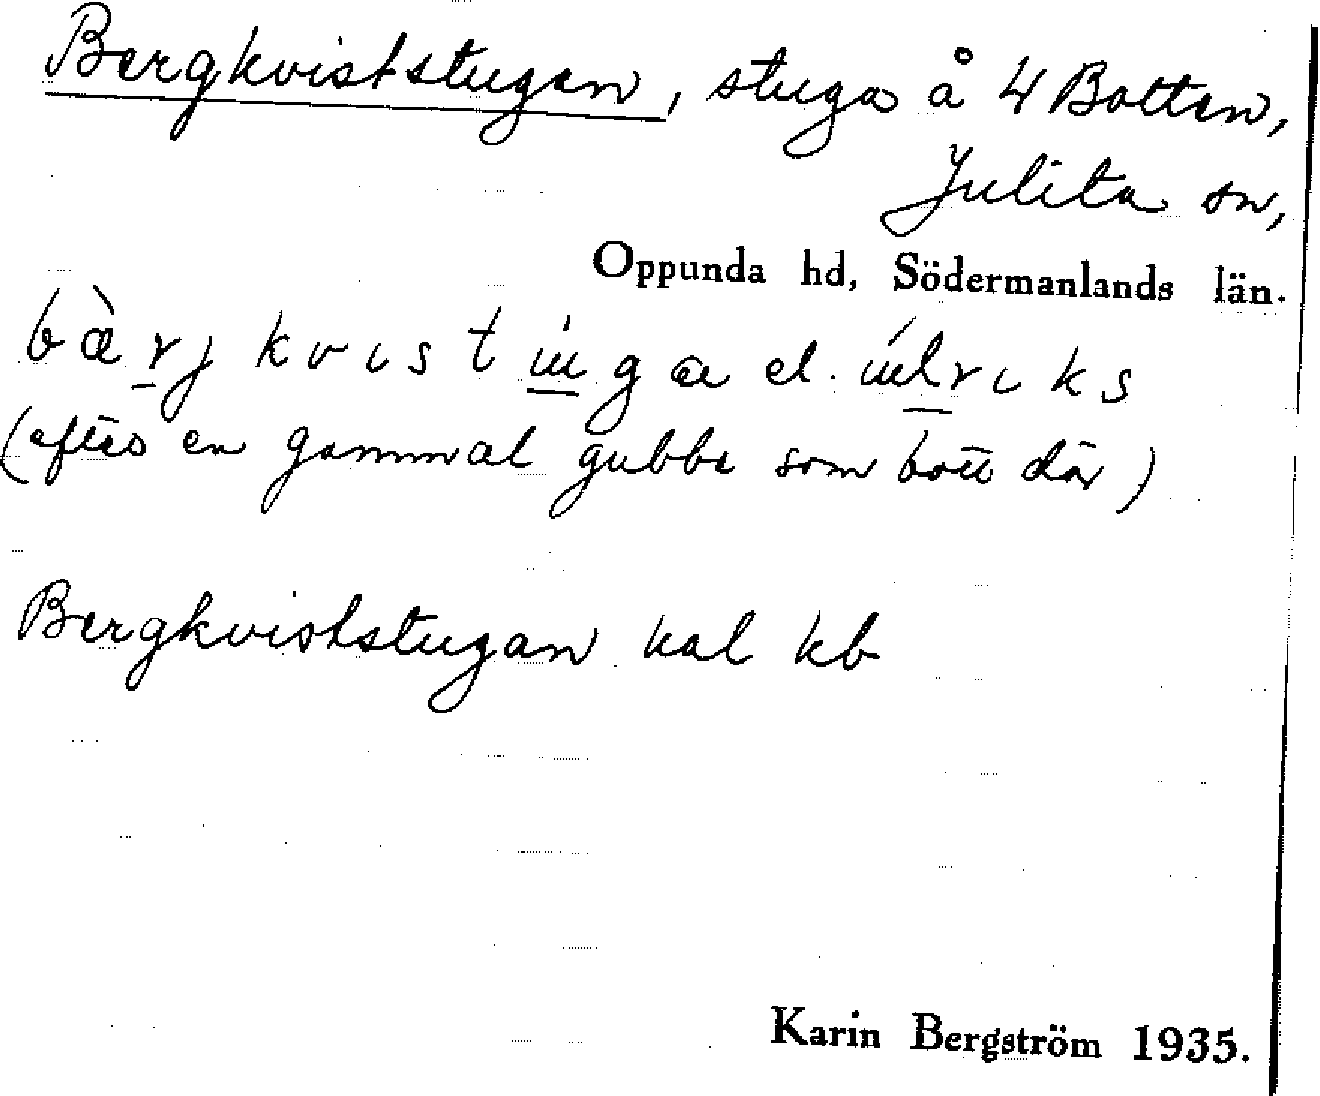 Bergkviststugan, stuga å 4 Botten,
Julita sn,
Oppunda hd, Södermanlands län.
bæ̀rj kvist ùga el. úlriks
(efter en gammal gubbe som bott där)
Bergkviststugan kal kb
Karin Bergström 1935.